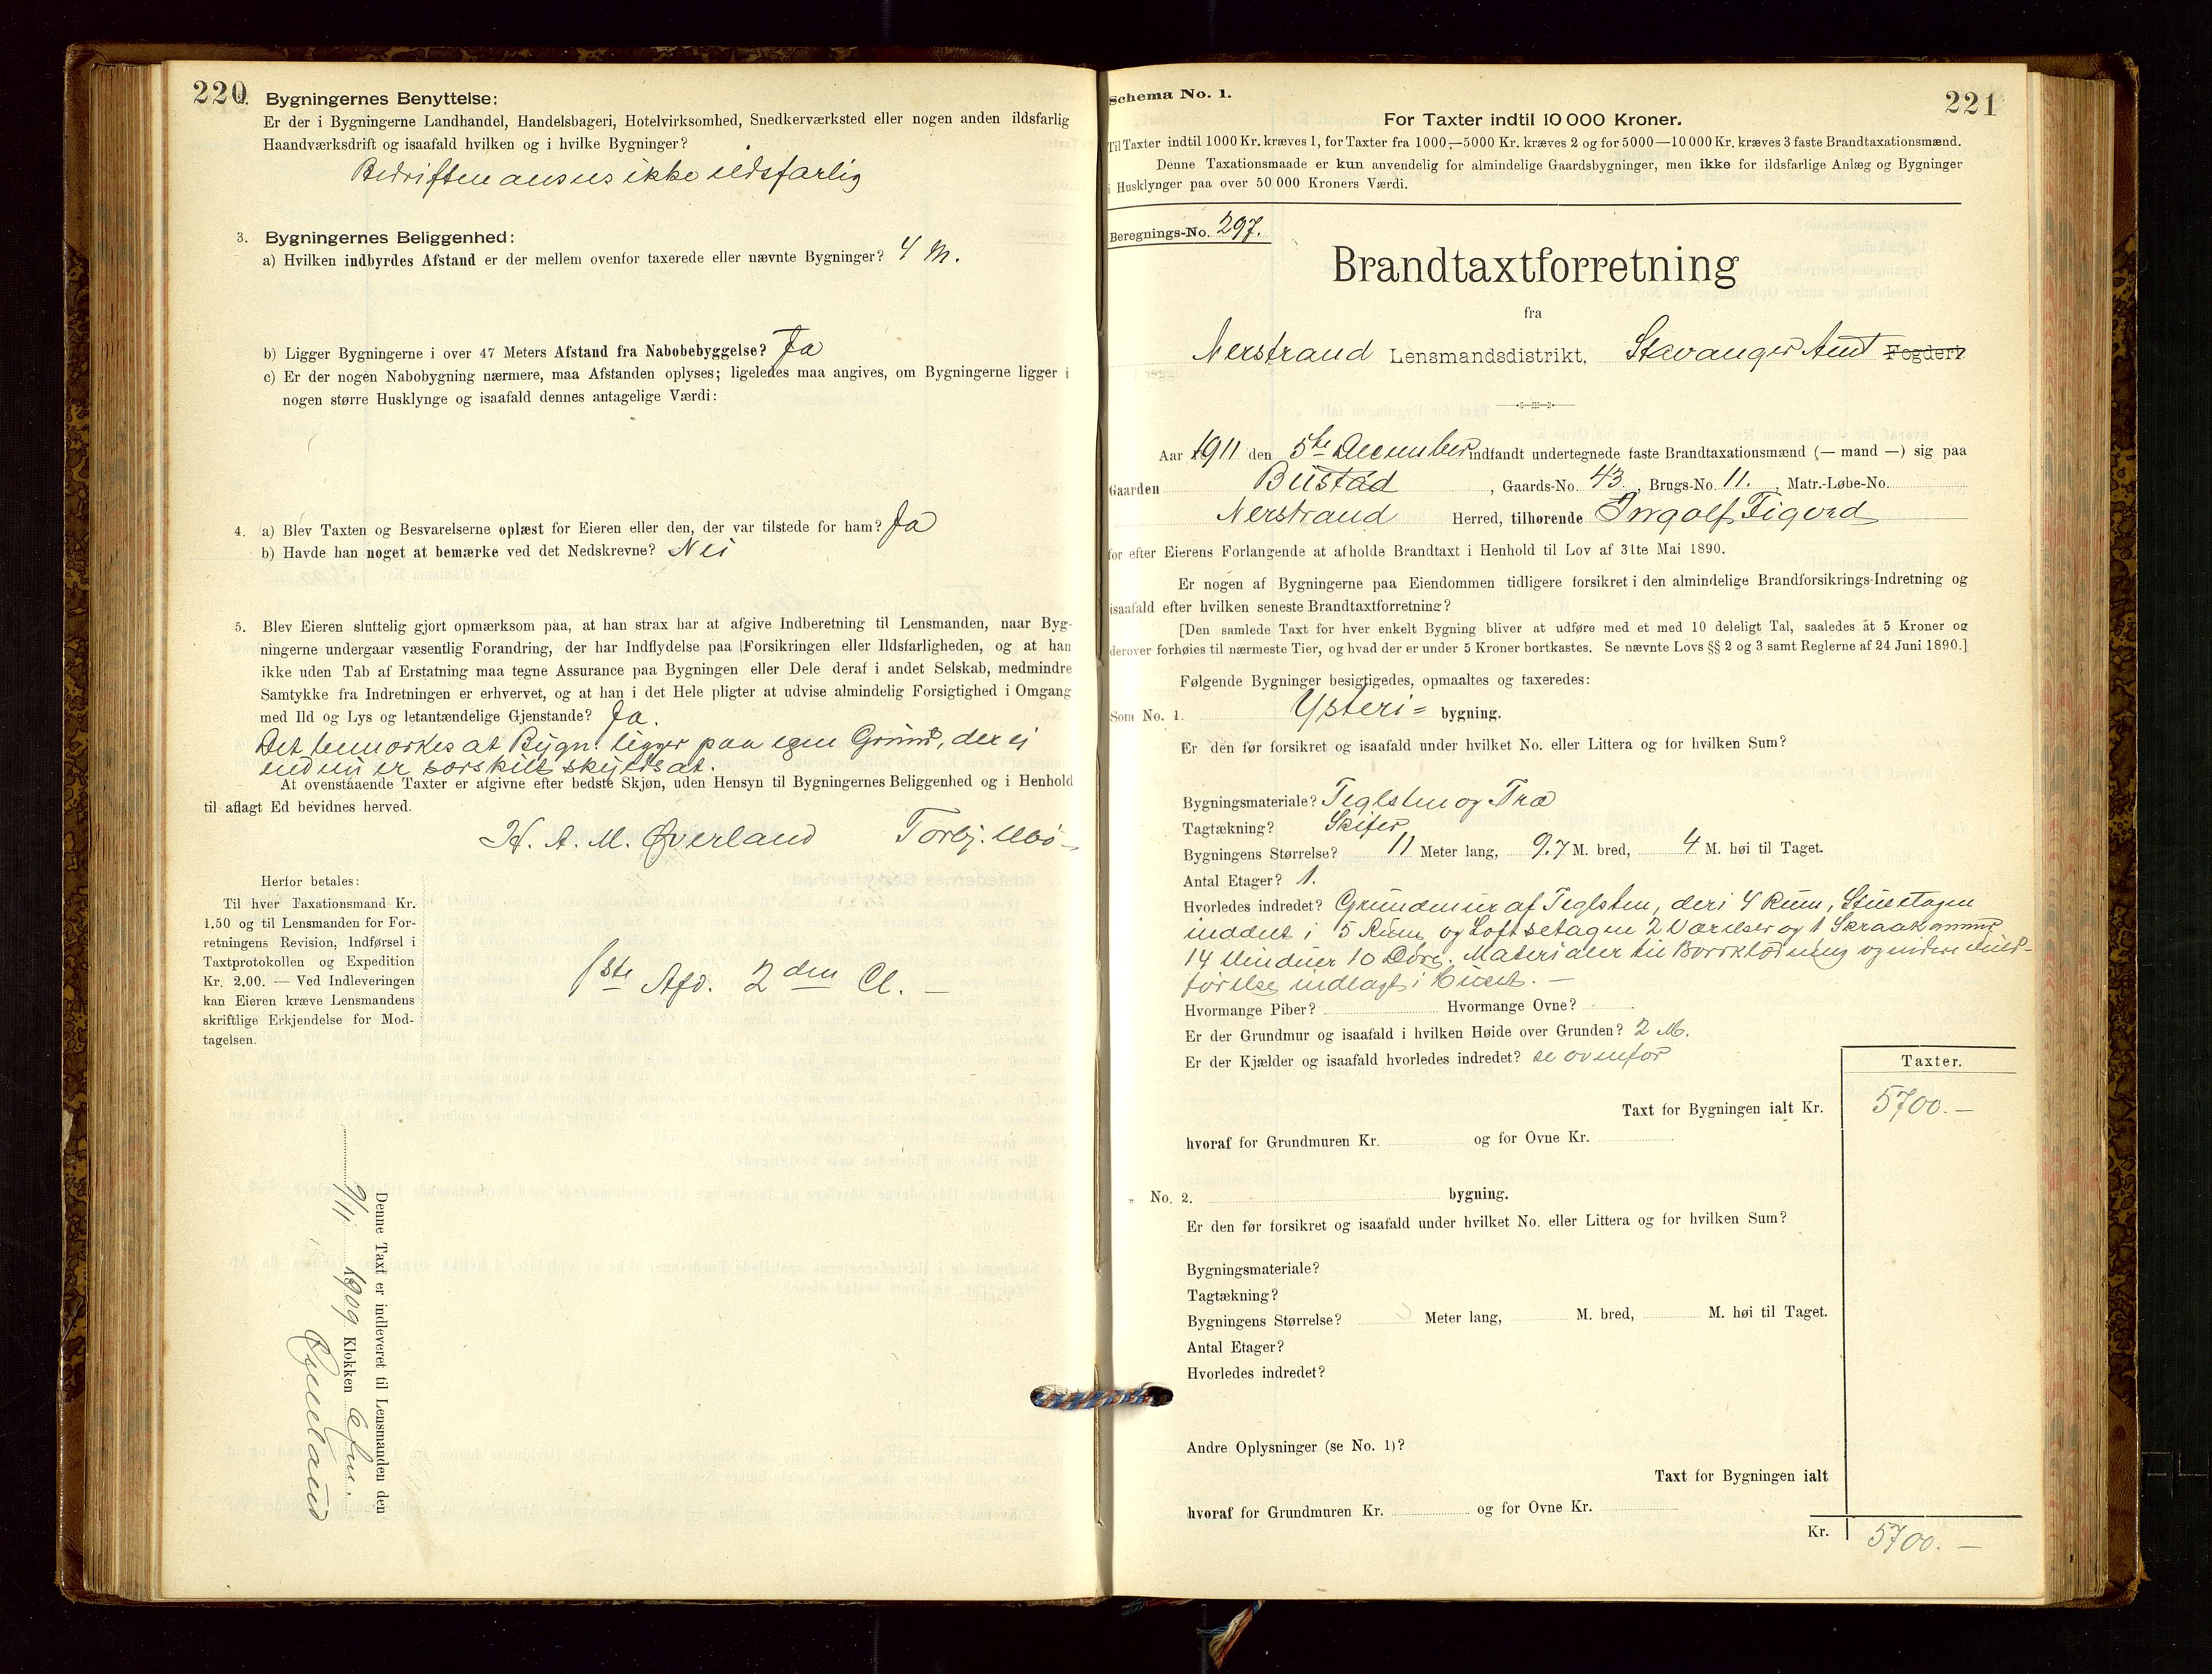 220
2. Bygningernes Benyttelse:
Er der i Bygningerne Landhandel, Handelsbageri, Hotelvirksomhed, Snedkerværksted eller nogen anden ildsfarlig
Haandværksdrift og isaafald hvilken og i hvilke Bygninger?
Bedriften ansees ikke ildsfarlig
3. Bygningernes Beliggenhed:
a) Hvilken indbyrdes Afstand er der mellem ovenfor taxerede eller nævnte Bygninger? 4 M.
b) Ligger Bygningerne i over 47 Meters Afstand fra Nabobebyggelse? Ja
c) Er der nogen Nabobygning nærmere, maa Afstanden oplyses; ligeledes maa angives, om Bygningerne ligger i
nogen større Husklynge og isaafald dennes antagelige Værdi:
4. a) Blev Taxten og Besvarelserne oplæst for Eieren eller den, der var tilstede for ham? Ja
b) Havde han noget at bemærke ved det Nedskrevne? Nei
5. Blev Eieren sluttelig gjort opmærksom paa, at han strax har at afgive Indberetning til Lensmanden, naar Byg-
ningerne undergaar væsentlig Forandring, der har Indflydelse paa Forsikringen eller Ildsfarligheden, og at han
ikke uden Tab af Erstatning maa tegne Assurance paa Bygningen eller Dele deraf i andet Selskab, medmindre
Samtykke fra Indretningen er erhvervet, og at han i det Hele pligter at udvise almindelig Forsigtighed i Omgang
med Ild og Lys og letantændelige Gjenstande? Ja.
Det bemærkes at Bygn. ligger paa egen Grund, der ei
endnu er særskilt skyldsat.
At ovenstaaende Taxter er afgivne efter bedste Skjøn, uden Hensyn til Bygningernes Beliggenhed og i Henhold
til aflagt Ed bevidnes herved.
H. A. M. Øverland Torbj.
Herfor betales:
Til hver Taxationsmand Kr.
1.50 og til Lensmanden for For-
retningens Revision, Indførsel i
Taxtprotokollen og Expedition
Kr. 2.00. — Ved Indleveringen
kan Eieren kræve Lensmandens
skriftlige Erkjendelse for Mod-
tagelsen.
1ste Afd. 2den Cl. —
Denne Taxt er indleveret til Lensmanden den
9/11 1909 Klokken
221
Schema No. 1.
For Taxter indtil 10 000 Kroner.
Til Taxter indtil 1000 Kr. kræves 1, for Taxter fra 1000—5000 Kr. kræves 2 og for 5000—10 000 Kr. kræves 3 faste Brandtaxationsmænd.
Denne Taxationsmaade er kun anvendelig for almindelige Gaardsbygninger, men ikke for ildsfarlige Anlæg og Bygninger
i Husklynger paa over 50 000 Kroners Værdi.
Beregnings-No. 297.
Brandtaxtforretning
fra
Nerstrand Lensmandsdistrikt, Stavanger Amt Fogderi
Aar 1911 den 5te December indfandt undertegnede faste Brandtaxationsmænd (— mand —) sig paa
Gaarden Bustad, Gaards-No. 43, Brugs-No. 11., Matr.-Løbe-No.
Nerstrand Herred, tilhørende Ingolf Tigerd
for efter Eierens Forlangende at afholde Brandtaxt i Henhold til Lov af 31te Mai 1890.
Er nogen af Bygningerne paa Eiendommen tidligere forsikret i den almindelige Brandforsikrings-Indretning og
isaafald efter hvilken seneste Brandtaxtforretning?
[Den samlede Taxt for hver enkelt Bygning bliver at udføre med et med 10 deleligt Tal, saaledes at 5 Kroner og
derover forhøies til nærmeste Tier, og hvad der er under 5 Kroner bortkastes. Se nævnte Lovs §§ 2 og 3 samt Reglerne af 24 Juni 1890.]
Følgende Bygninger besigtigedes, opmaaltes og taxeredes:
Som No. 1. Ysteri= bygning.
Er den før forsikret og isaafald under hvilket No. eller Littera og for hvilken Sum?
Bygningsmateriale? Teglsten og Træ
Tagtækning? Skifer
Bygningens Størrelse? 11 Meter lang, 9.7 M. bred, 4 M. høi til Taget.
Antal Etager? 1.
Hvorledes indredet? Grundmur af Teglsten, deri 4 Rum, Stueetagen
inddelt i 5 Rum og Loftsetagen 2 Værelser og 1 Skraakammer
14 Vinduer 10 Døre. Materialer til Bordklædning og indere
førelse indlagt i Huset. —
Hvormange Piber? Hvormange Ovne?
Er der Grundmur og isaafald i hvilken Høide over Grunden? 2 M.
Er der Kjælder og isaafald hvorledes indredet? se ovenfor
Taxter.
Taxt for Bygningen ialt Kr. 5700. —
hvoraf for Grundmuren Kr. og for Ovne Kr.
„ No. 2. bygning.
Er den før forsikret og isaafald under hvilket No. eller Littera og for hvilken Sum?
Bygningsmateriale?
Tagtækning?
Bygningens Størrelse? Meter lang, M. bred, M. høi til Taget.
Antal Etager?
Hvorledes indredet?
Andre Oplysninger (se No. 1)?
Taxt for Bygningen ialt
hvoraf for Grundmuren Kr. og for Ovne Kr.
Kr. 5700. —